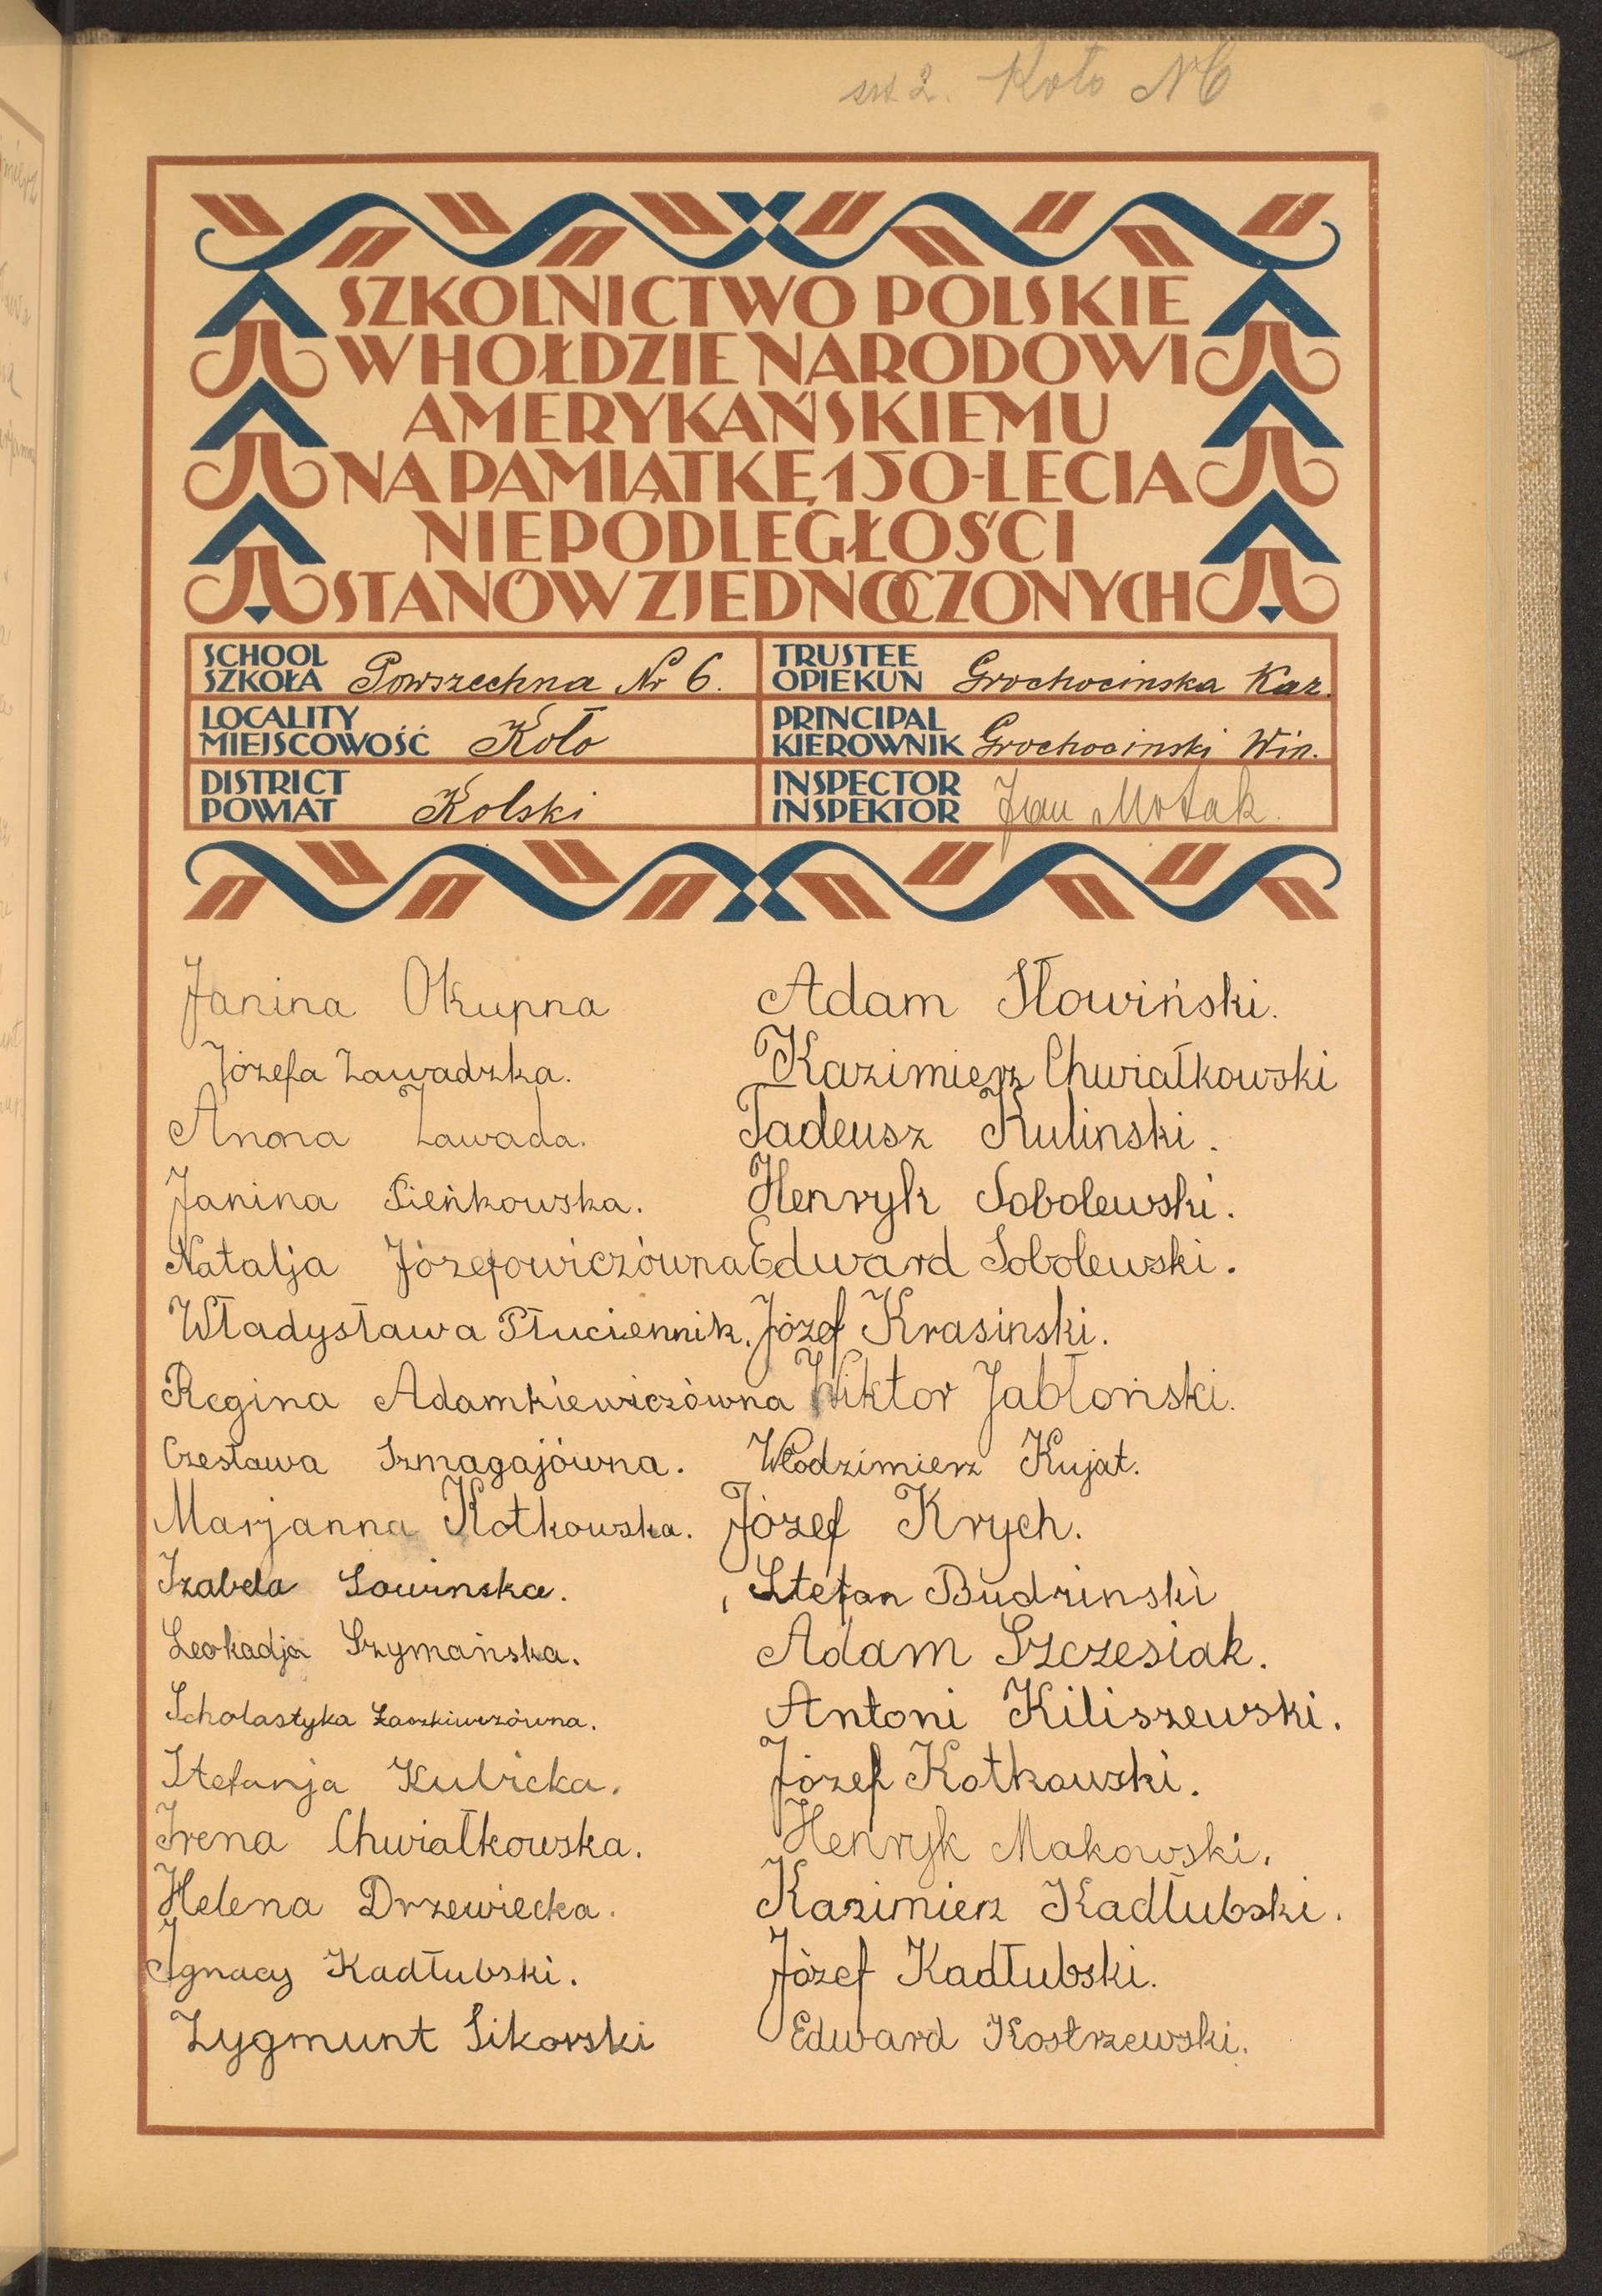 Koło
SZKOLNICTWO POLSKIE
W HOŁDZIE NARODOWI
AMERYKAŃSKIEMU
NA PAMIĄTKĘ 150-LECIA
NIEPODLEGŁOŚCI
STANÓW ZJEDNOCZONYCH
SCHOOL
SZKOŁA Powszechna Nr 6.
TRUSTEE
OPIEKUN Grochocinska Kaz.
LOCALITY
MIEJSCOWOŚĆ Koło
PRINCIPAL
KIEROWNIK Grochocinski Win.
DISTRICT
POWIAT Kolski
INSPECTOR
INSPEKTOR Jan
Janina Okupna
Józefa Zawadzka.
Anona Zawada.
Janina Sieńkowska.
Natalja Józefowiczówna
Władysława Płuciennik.
Regina Adamkiewiczówna
Czesława Szmagajówna.
Marjanna Kotkowska.
Izabela Sowinska.
Leokadja Szymańska.
Scholastyka Łaszkiwczówna.
Stefanja Kubicka.
Irena Chwiałkowska.
Helena Drzewiecka.
Ignacy Kadłubski.
Zygmunt Sikorski
Adam Słowiński.
Kazimierz Chwiałkowski
Tadeusz Kulinski.
Henryk Sobolewski.
Edward Sobolewski.
Józef Krasinski.
Wiktor Jabłoński.
Włodzimierz Kujat.
Józef Krych.
Stefan Budzinski
Adam Szczesiak.
Antoni Kiliszewski.
Józef Kotkowski.
Henryk Makowski.
Kazimierz Kadłubski.
Józef Kadłubski.
Edward Kostrzewski.